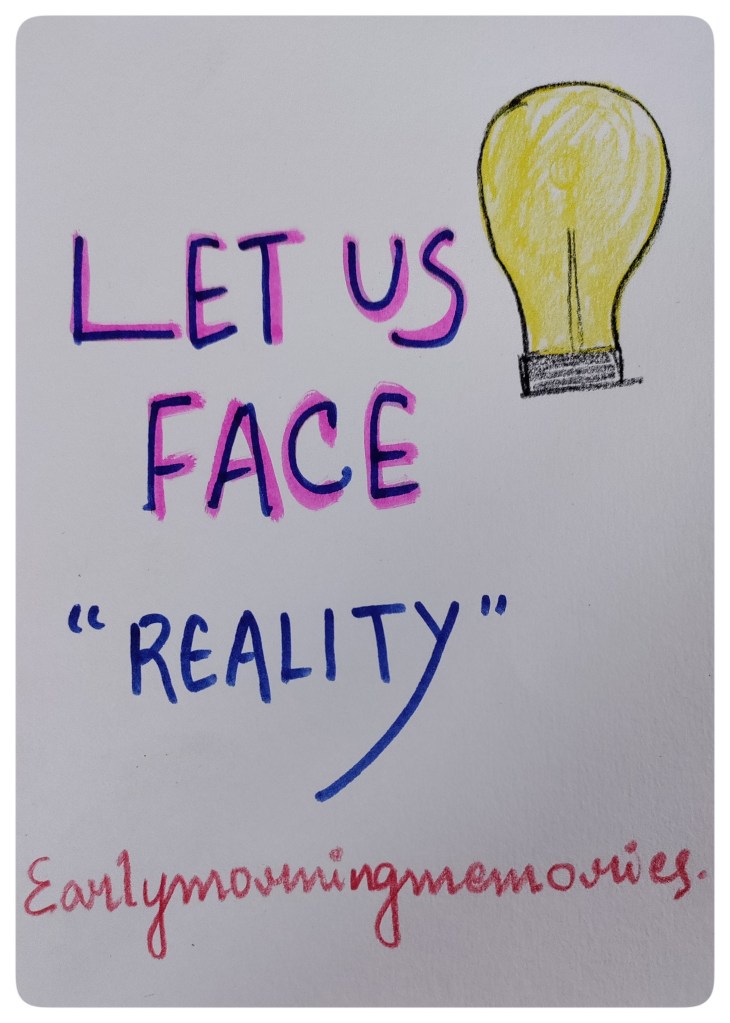 LET US
FACE
“REALITY”
Earlymorningmemories.